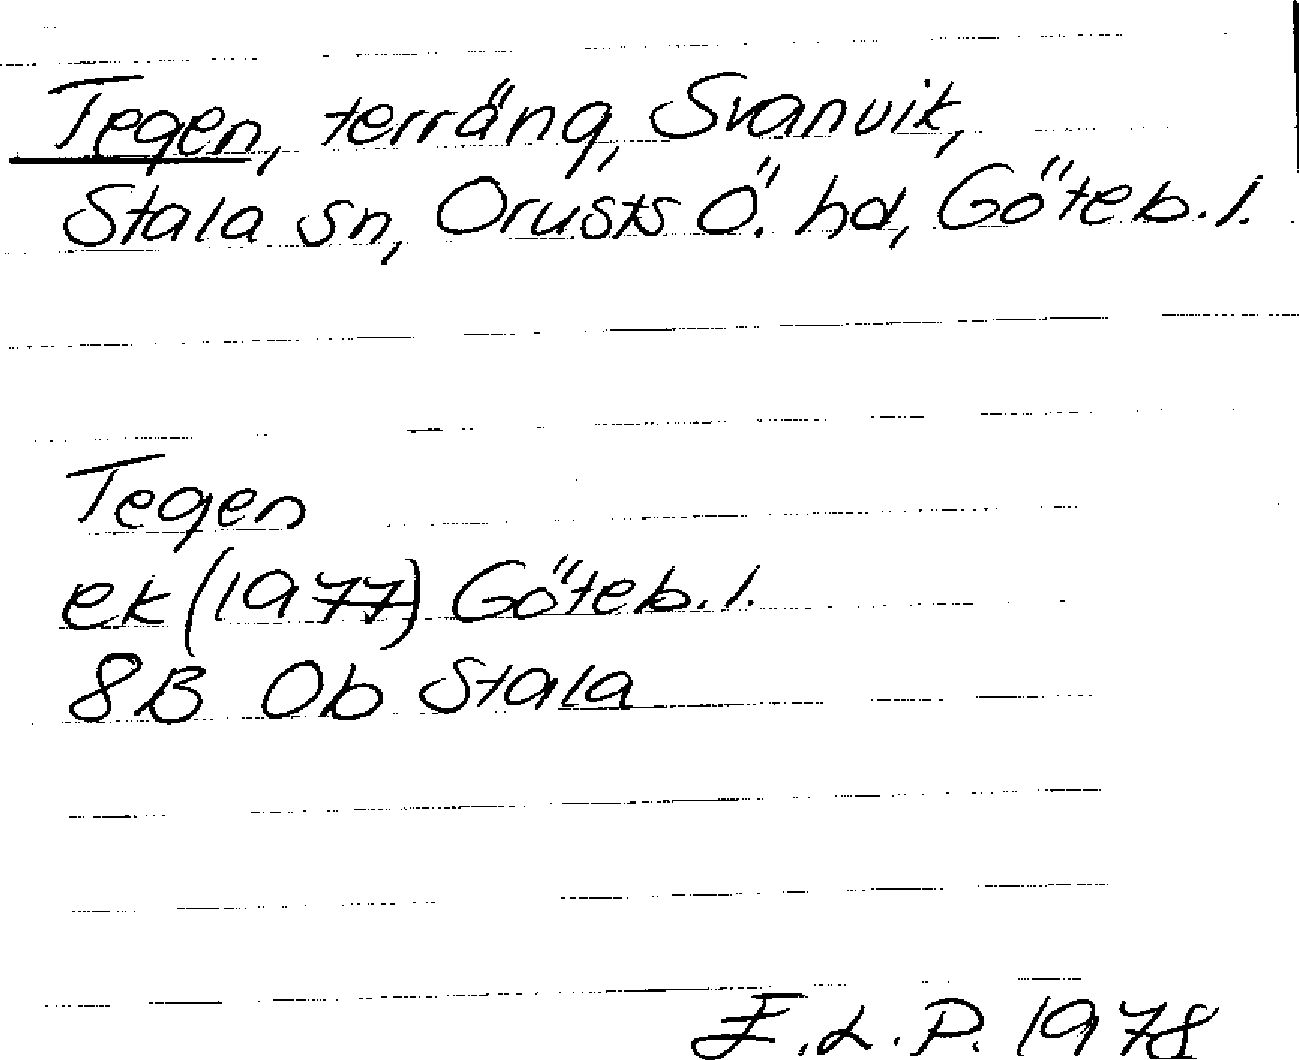 Tegen, terräng, Svanvik,
Stala sn, Orusts Ö. hd, Göteb. l.
Tegen
ek (1977) Göteb. l.
8B 0b Stala
E.L.P. 1978